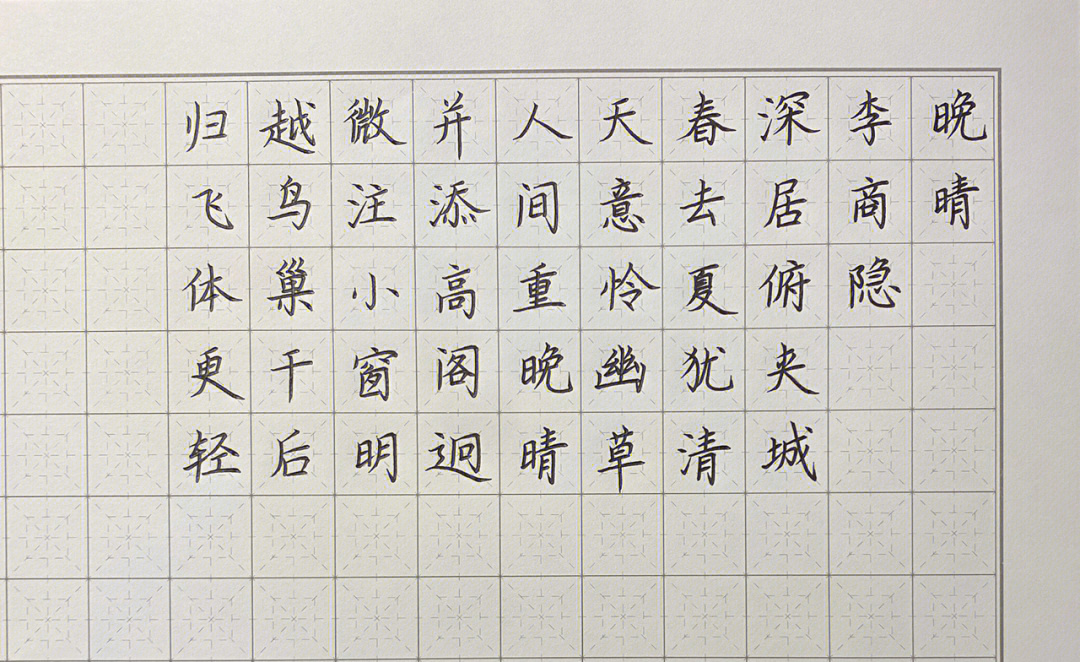 晚晴
李商隐
深居俯夹城
春去夏犹清
天意怜幽草
人间重晚晴
并添高阁迥
微注小窗明
越鸟巢干后
归飞体更轻